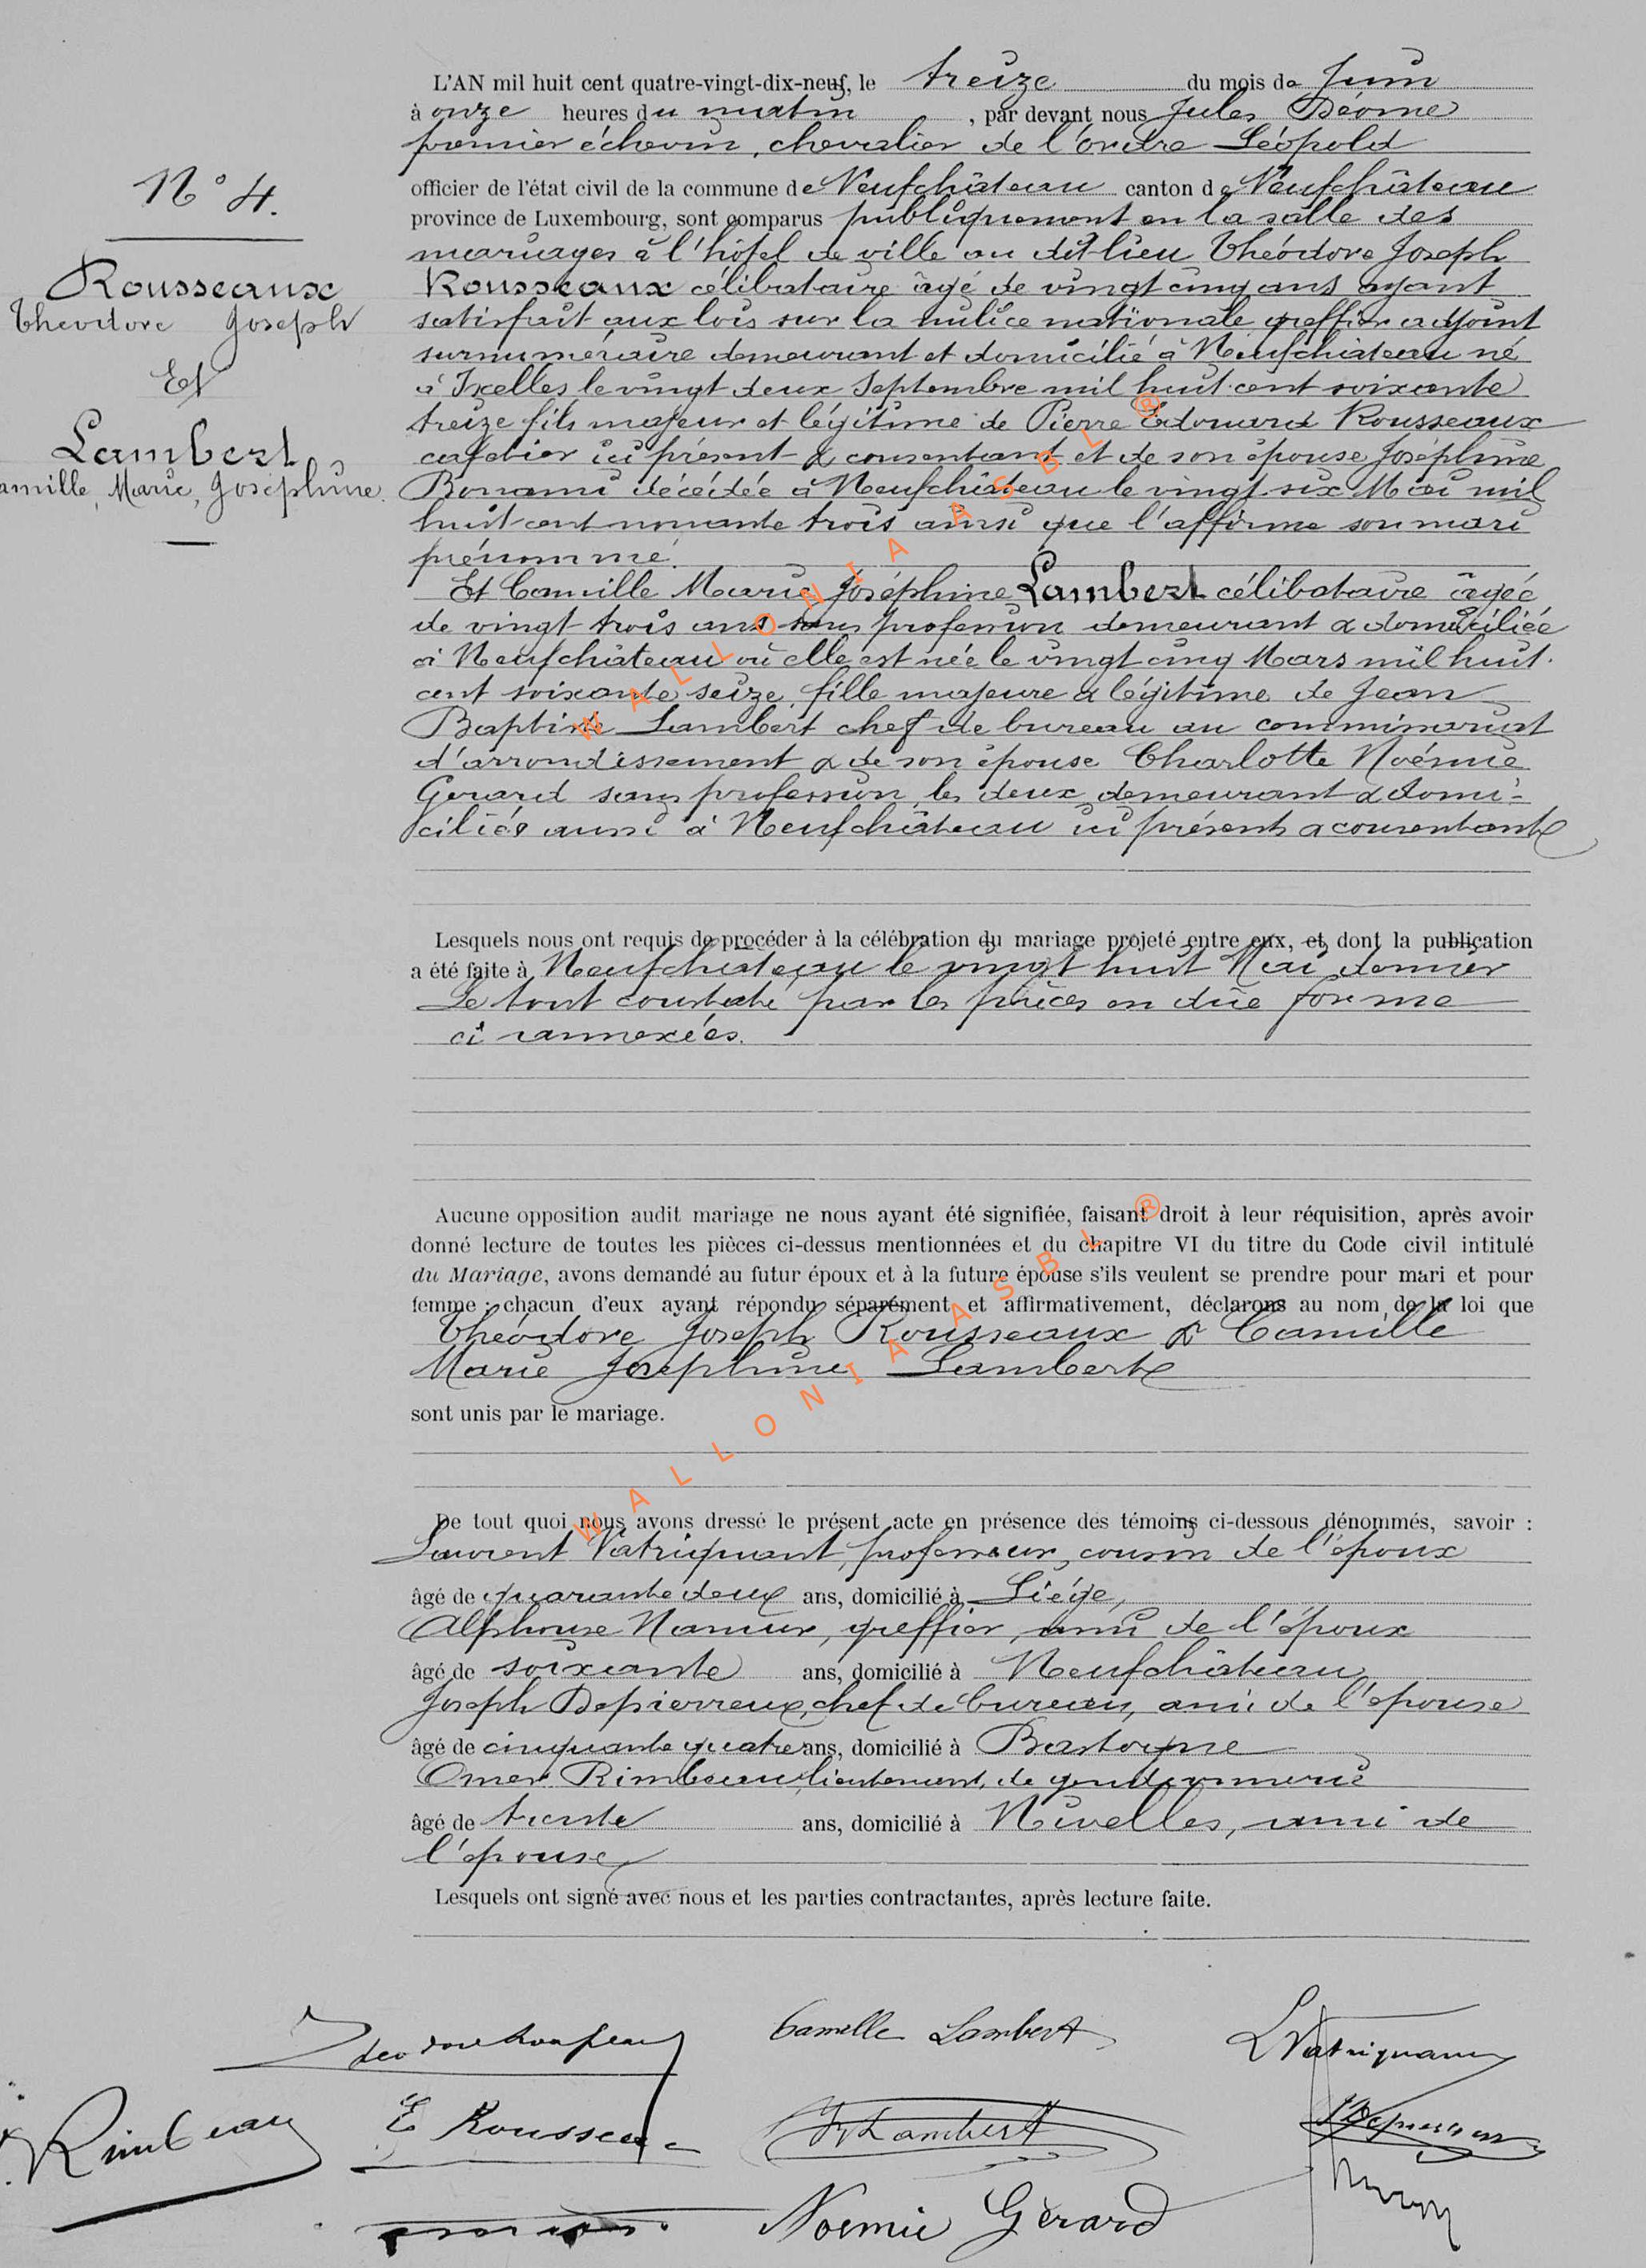 L'AN mil huit cent quatre-vingt-dix-neuf, le treize du mois de Juin
à onze heures du matin, par devant nous Jules Déome
premier échevin, chevalier de l'ordre Léopold
officier de l'état civil de la commune de Neufchâteau canton de Neufchâteau
province de Luxembourg, sont comparus publiquement en la salle des
mariages à l'hôtel de ville au dit lieu Théodore Joseph
Rousseaux célibataire âgé de vingt cinq ans ayant
satisfait aux lois sur la milice nationale greffier adjoint
surnuméraire demeurant et domicilié à Neufchâteau né
à Ixelles le vingt deux Septembre mil huit cent soixante
treize fils majeur et légitime de Pierre Edouard Rousseaux
cafetier ici présent & consentant et de son épouse Joséphine
Bonami décédée à Neufchâteau le vingt six Mai mil
huit cent nonante trois ainsi que l'affirme son mari
prénommé.
Et Camille Marie Joséphine Lambert célibataire âgée
de vingt trois ans sans profession demeurant & domiciliée
à Neufchâteau où elle est née le vingt cinq Mars mil huit
cent soixante seize, fille majeure & légitime de Jean
Baptiste Lambert chef de bureau au commissariat
d'arrondissement & de son épouse Charlotte Noémie
Gerard sans profession, les deux demeurant & domi-
ciliés aussi à Neufchâteau ici présents & consentants
N° 4.
Rousseaux
Théodore Joseph
Et
Lambert
amille, Marie, Joséphine.
Lesquels nous ont requis de procéder à la célébration du mariage projeté entre eux, et dont la publication
a été faite à Neufchâteau le vingt huit Mai dernier
Le tout constaté par les pièces en due forme
ci annexées.
Aucune opposition audit mariage ne nous ayant été signifiée, faisant droit à leur réquisition, après avoir
donné lecture de toutes les pièces ci-dessus mentionnées et du chapitre VI du titre du Code civil intitulé
du Mariage, avons demandé au futur époux et à la future épouse s'ils veulent se prendre pour mari et pour
femme ; chacun d'eux ayant répondu séparément et affirmativement, déclarons au nom de la loi que
Théodore Joseph Rousseaux & Camille
Marie Joséphine Lambert
sont unis par le mariage.
De tout quoi nous avons dressé le présent acte en présence des témoins ci-dessous dénommés, savoir :
Laurent Vatriquant, professeur, cousin de l'époux
âgé de quarante deux ans, domicilié à Liége,
Alphonse Namur, greffier, ami de l'époux
âgé de soixante ans, domicilié à Neufchâteau
Joseph Depierreux, chef de bureau, ami de l'épouse
âgé de cinquante quatre ans, domicilié à Bastogne
Omer Rimbeau, lieutenant de gendarmerie
âgé de trente ans, domicilié à Nivelles, ami de
l'épouse
Lesquels ont signé avec nous et les parties contractantes, après lecture faite.
Camille Lambert
LVatriquant
Rimbeau
E Rousseaux
Lambert
Noémie Gérard
WALLONIA ASBL ®
WALLONIA ASBL ®